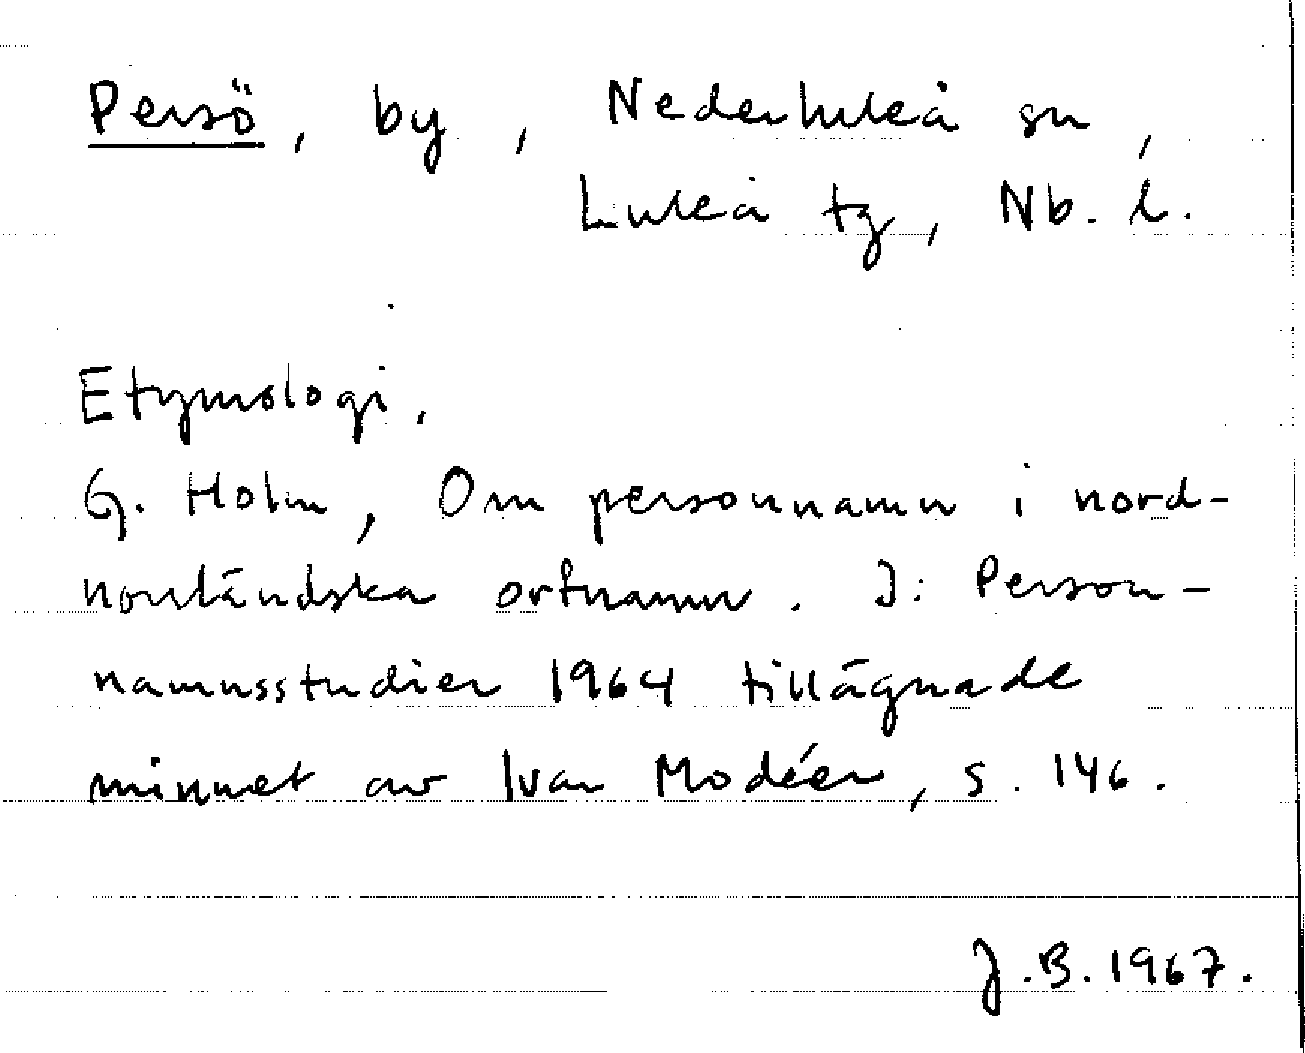 Persö, by, Nederluleå sn,
Luleå tg, Nb. l.
Etymologi.
G. Holm, Om personnamn i nord-
norrländska ortnamn. I: Person-
namnsstudier 1964 tillägnade
minnet av Ivar Modéer, s. 146.
J.B. 1967.